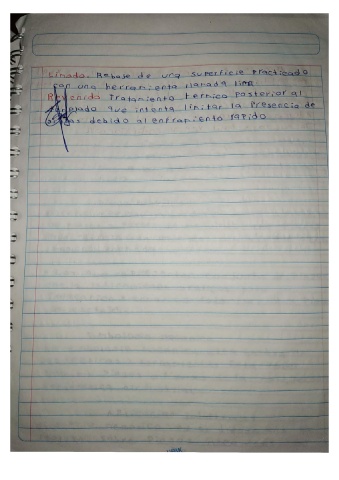 Limado. Rebaje de una superficie practicado
con una herramienta llamada lima
Revenido Tratamiento termico posterior al
que intenta limitar la presencia de
debido al enfriamiento rapido